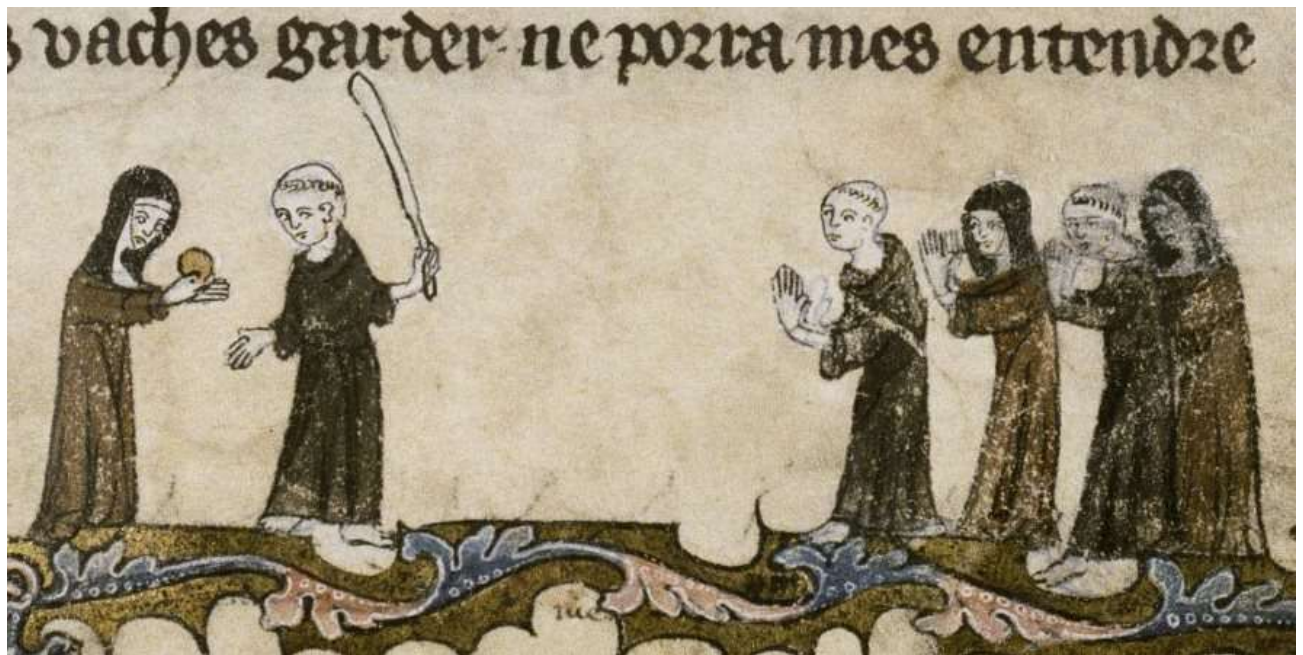 vaches garder ne porra mes entendre